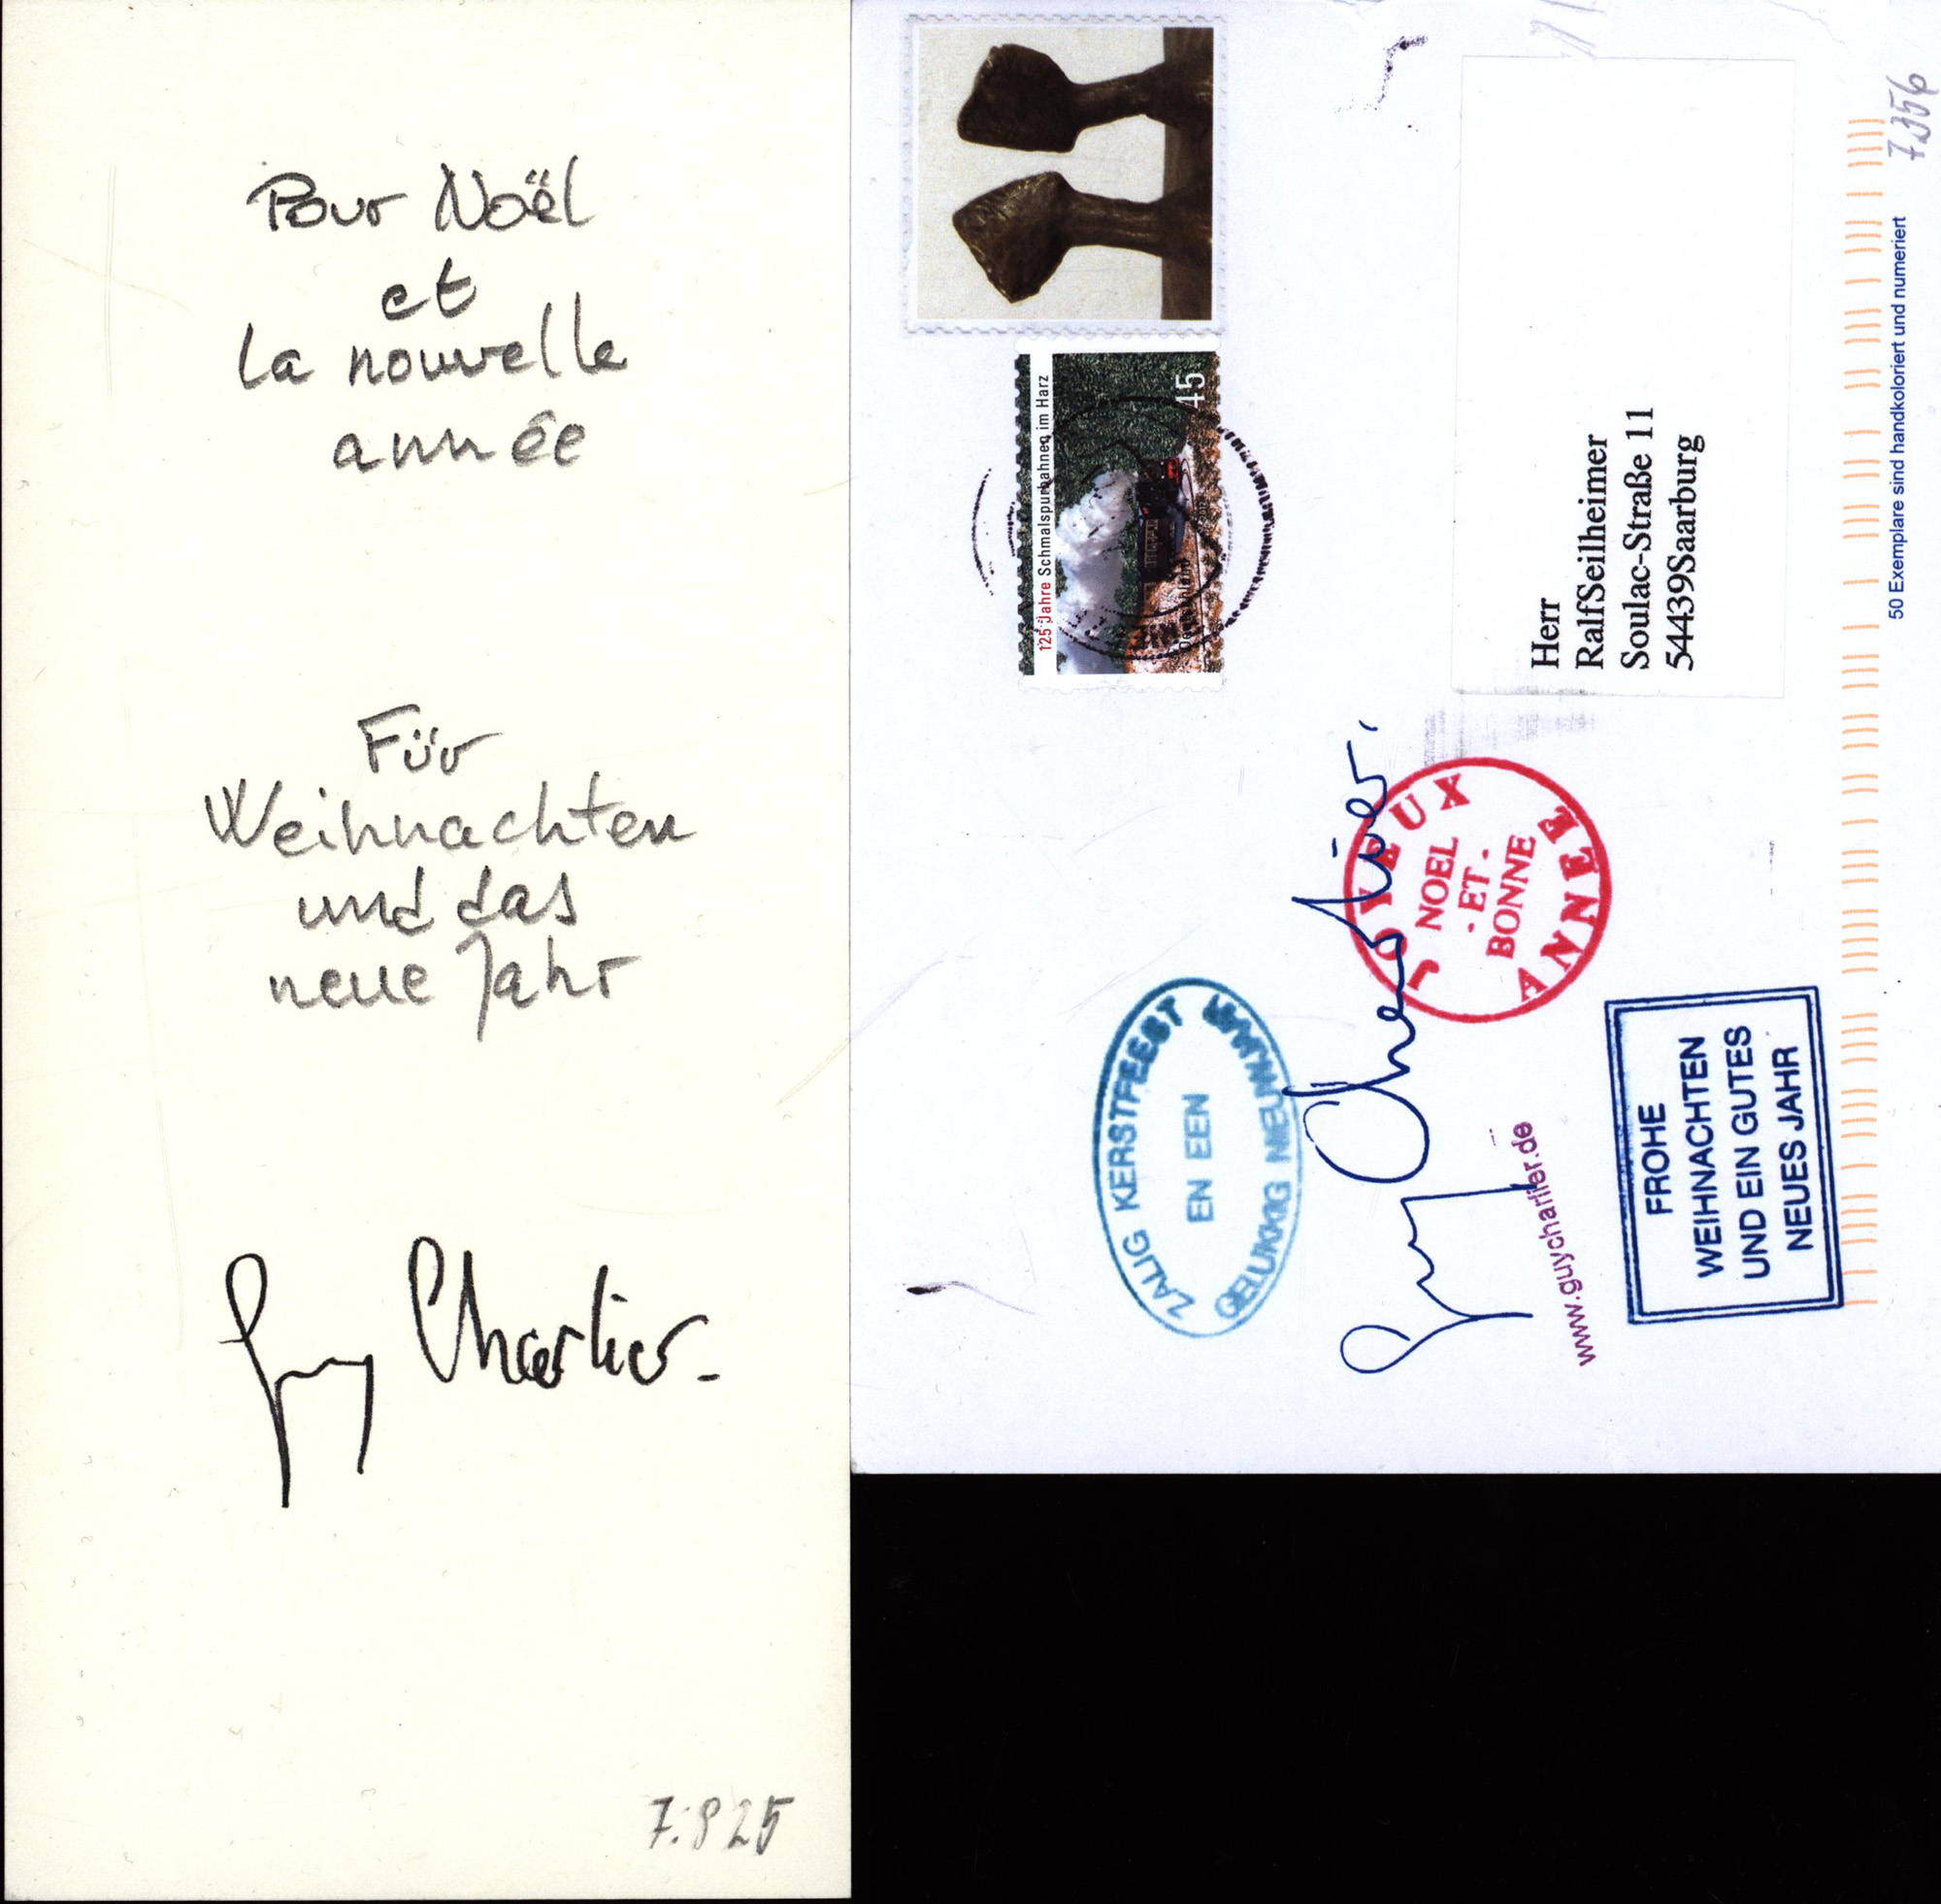 Pour Noël
et
la nouvelle
année
Für
Weihnachten
und das
neue Jahr
Guy Charlier.
7.825
125 Jahre Schmalspurbahnen im Harz
45
Herr
RalfSeilheimer
Soulac-Straße 11
54439Saarburg
ZALIG KERSTFEEST
EN EEN
GELUKKIG NIEUWJAAR
Guy Charlier.
www.guycharlier.de
JOYEUX
NOEL
- ET -
BONNE
ANNEE
FROHE
WEIHNACHTEN
UND EIN GUTES
NEUES JAHR
50 Exemplare sind handkoloriert und numeriert
7.356